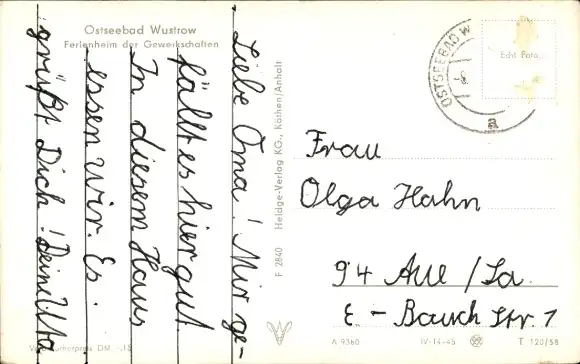 Ostseebad Wustrow
Ferienheim der Gewerkschaften
Liebe Oma! Mir ge-
fällt es hier gut.
In diesem Haus
essen wir. Es
grüßt Dich! Deine Uta
F 2840 Heldge-Verlag KG., Köthen/Anhalt
OSTSEEBAD W
a
Echt Foto
Frau
Olga Hahn
94 Aue /Sa.
E - Bauch Str. 1
DM -,15
A 9360 IV-14-45 T 120/58